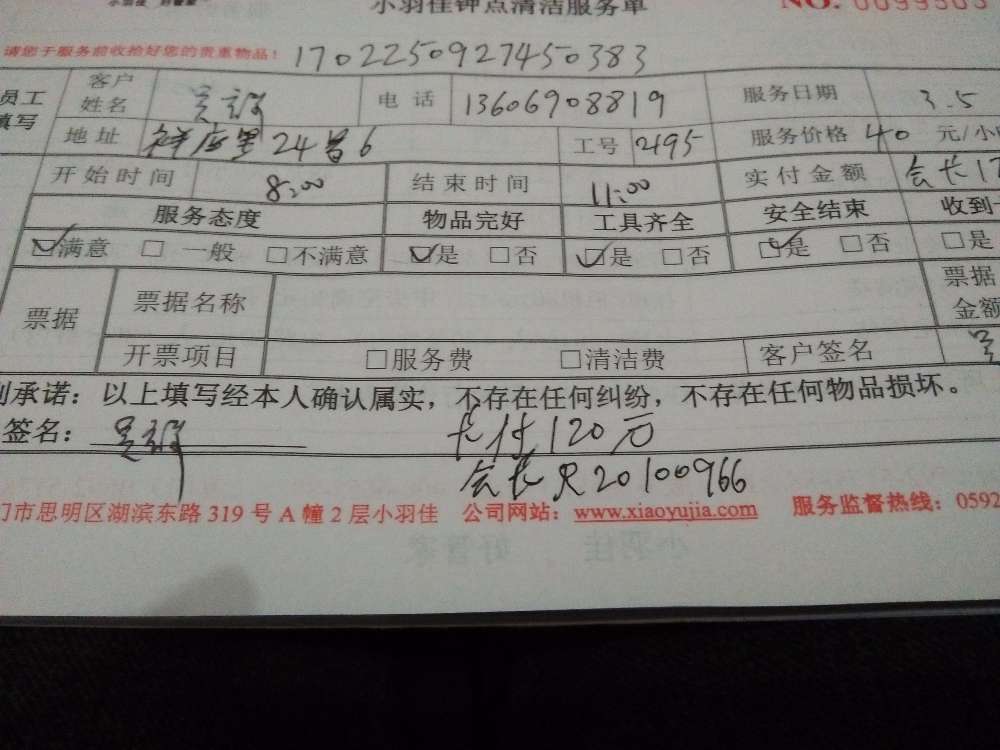 小羽佳 好管家 小羽佳钟点清洁服务单 NO. 0099503
请您于服务前收拾好您的贵重物品! 1702250927450383
员工填写 客户姓名 电话 13606908819 服务日期 3.5
地址 24 6 工号 2495 服务价格 40 元/小
开始时间 8:00 结束时间 11:00 实付金额 会长
服务态度 物品完好 工具齐全 安全结束 收到
☑满意 □一般 □不满意 ☑是 □否 ☑是 □否 ☑是 □否 □是
票据 票据名称 票据金额
开票项目 □服务费 □清洁费 客户签名
承诺：以上填写经本人确认属实，不存在任何纠纷，不存在任何物品损坏。
签名： 付120元
会长 20100966
门市思明区湖滨东路 319 号 A 幢 2 层小羽佳 公司网站：www.xiaoyujia.com 服务监督热线：0592